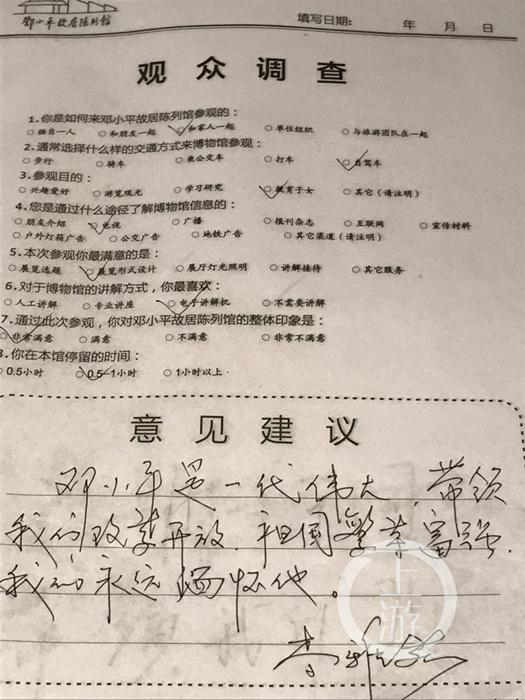 邓小平故居陈列馆
填写日期: 年 月 日
观众调查
1.你是如何来邓小平故居陈列馆参观的:
○独自一人 ○和朋友一起 ○和家人一起 ○单位组织 ○与旅游团队在一起
2.通常选择什么样的交通方式来博物馆参观:
○步行 ○骑车 ○乘公交车 ○打车 ○自驾车
3.参观目的:
○兴趣爱好 ○游览观光 ○学习研究 ○教育子女 ○其它(请注明)
4.您是通过什么途径了解博物馆信息的:
○朋友介绍 ○电视 ○广播 ○报刊杂志 ○互联网 ○宣传材料
○户外灯箱广告 ○公交广告 ○地铁广告 ○其它渠道(请注明)
5.本次参观你最满意的是:
○展览选题 ○展览形式设计 ○展厅灯光照明 ○讲解接待 ○其它服务
6.对于博物馆的讲解方式,你最喜欢:
○人工讲解 ○专业讲座 ○电子讲解机 ○不需要讲解
7.通过此次参观,你对邓小平故居陈列馆的整体印象是:
○非常满意 ○满意 ○不满意 ○非常不满意
8.你在本馆停留的时间:
○0.5小时 ○0.5-1小时 ○1小时以上
意见建议
邓小平是一代伟大,带领
我们改革开放.祖国繁荣富强.
我们永远缅怀他。
李
上游